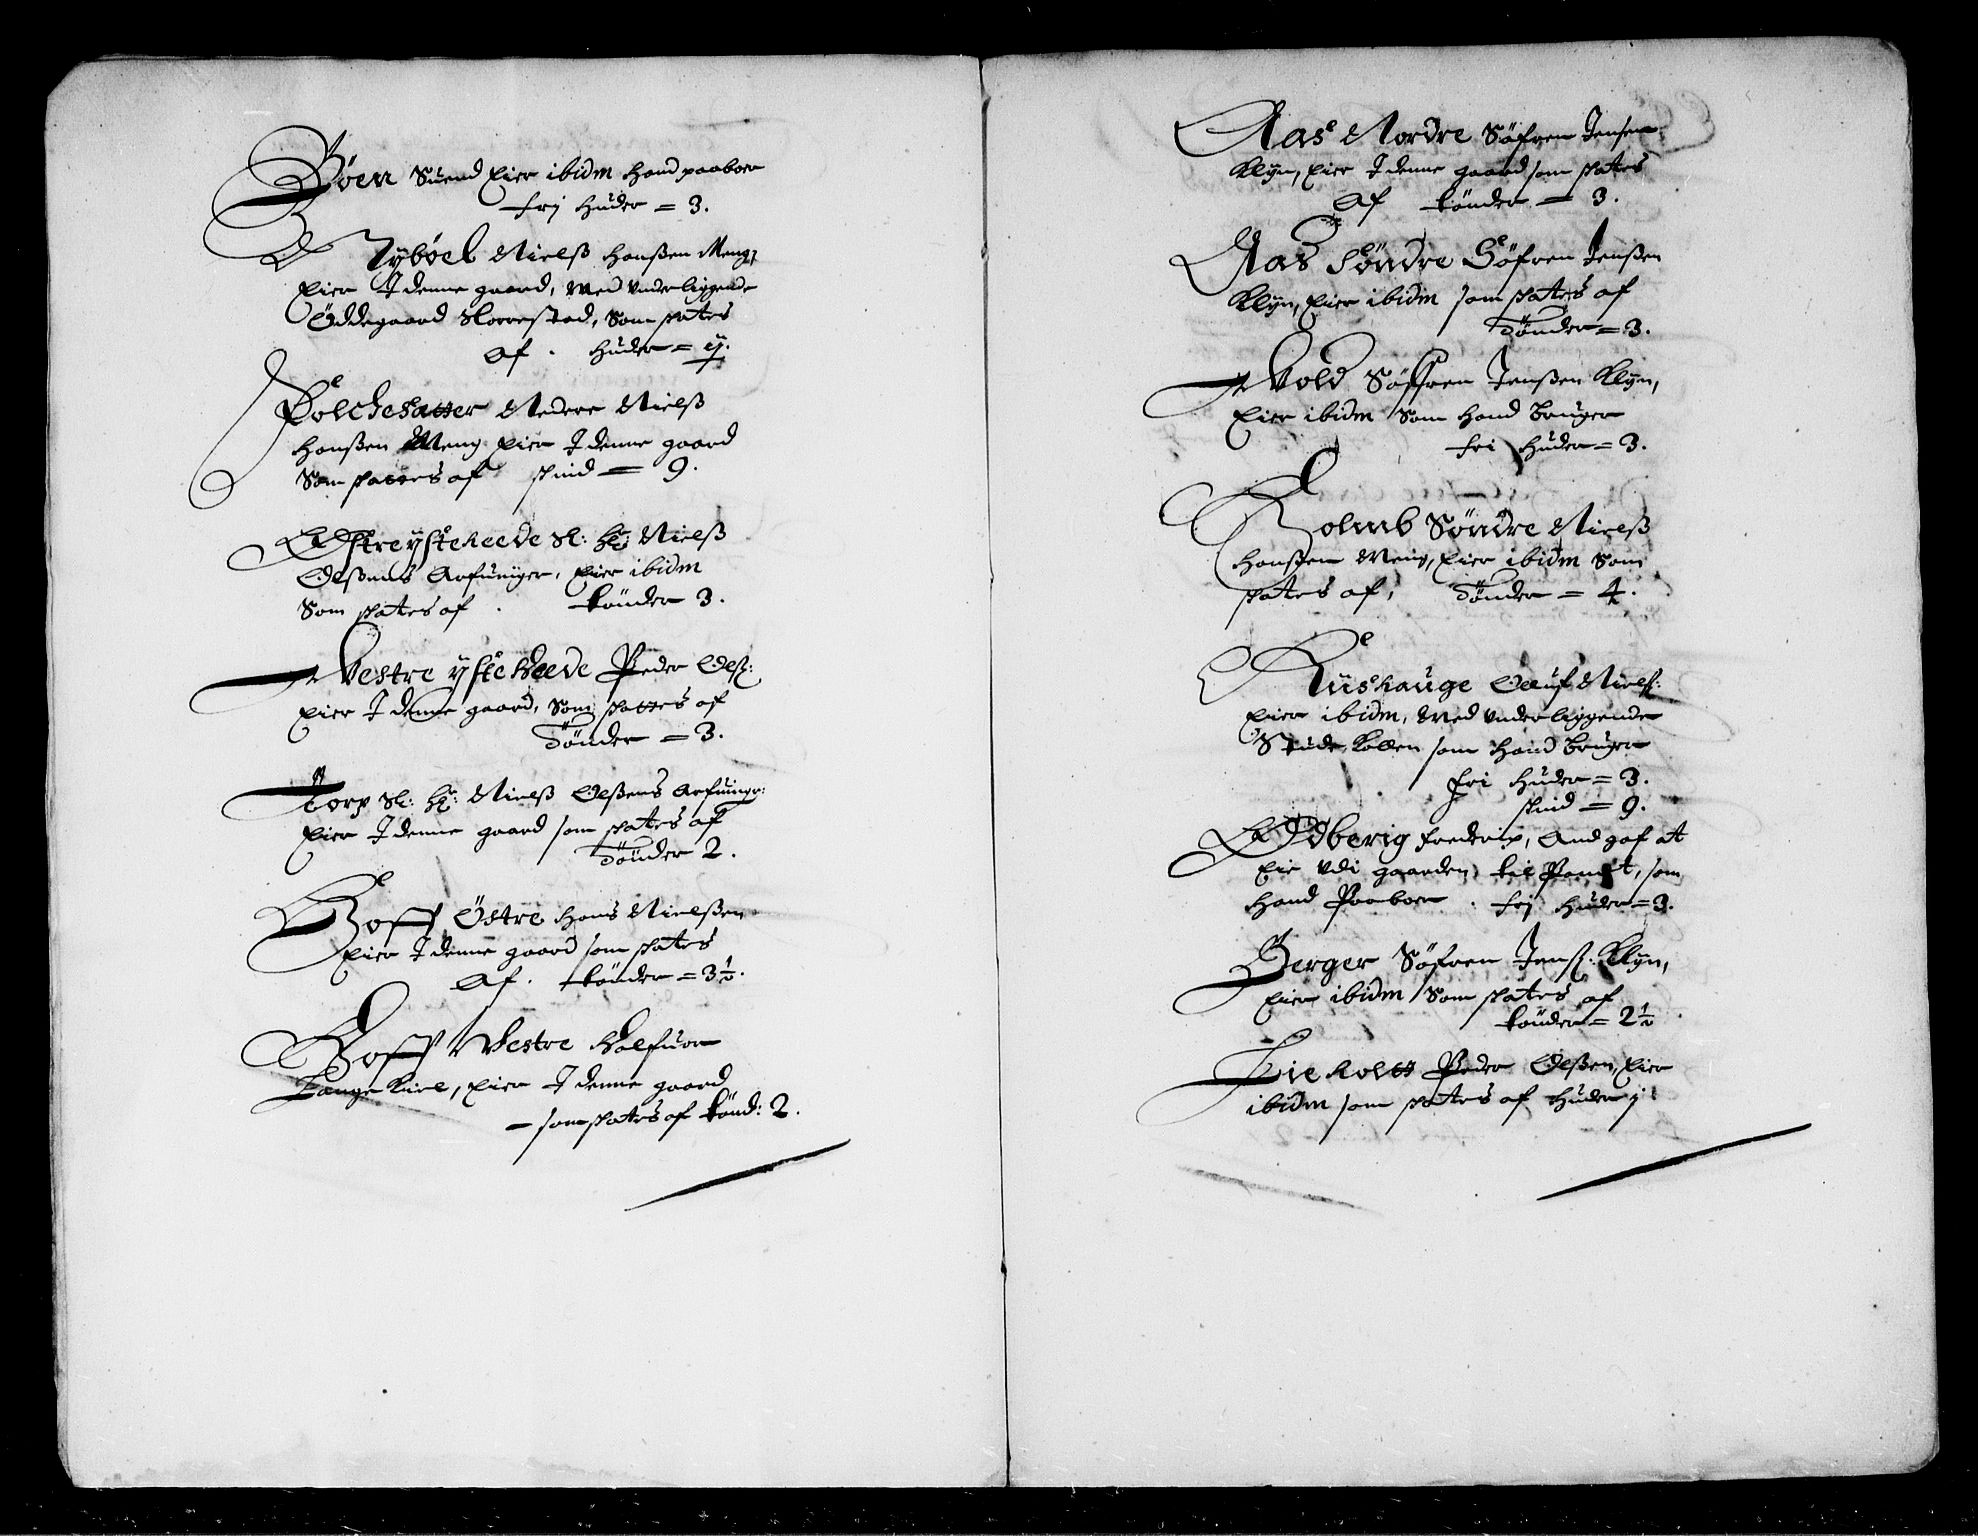 Böen Suend Eier ibidm hand paaboer
frj Huder = 3.
Nyböel Nielß Hanßen Meng,
Eier I denne gaard, med underliggende
Öddegaard Norrestad, som skates
Af . Huder = ij.
Folchesatter Nedere Nielß
Hanßen Meng Eier I denne gaard
Som skattes af skind = 9.
Östre ysteheede Sl: Hr: Nielß
Olßens Arfuinger, Eier ibidm
Som skates af . tönder 3.
Vestre ysteheede Peder Olß:
Eier I denne gaard, Som skattes af
Tönder = 3.
Torp Sl: Hr: Nielß Olßens Arfuinger:
Eier I denne gaard som skates af
Tönder 2.
Hoff Östre Hans Nielßen
Eier I denne gaard som skates
Af . tönder = 3½.
Hoff Vestre Halfuor
Lange Kiire, Eier I denne gaard
som skates af tönd: 2.
Aas Nordre Söfren Jensen
Klyn, Eier I denne gaard som skates
Af tönder = 3.
Aas Söndre Söfren Jenßen
Klyn, Eier ibidm som skates af
Tönder = 3.
Vold Söffren Jenßen Klyn,
Eier ibidm Som Hand bruger
fri Huder = 3.
Holmb Söndre Nielß
Hanßen Meng, Eier ibidm Som
skates af, Tönder = 4.
Ruushauge Oluf Nielß:
Eier ibidm, Med underliggende
Studekollen som Hand bruger
fri Huder = 3.
skind = 9.
Odberig Frederix, And gaf at
Eie udi gaarden til Pandt, som
Hand Paaboer . frj Huder = 3.
Berger Söfren Jenß: Klyn,
Eier ibidm Som skates af
tönder = 2½
Lieholtt Peder Olßen, Eier
ibidm som skates af Huder j